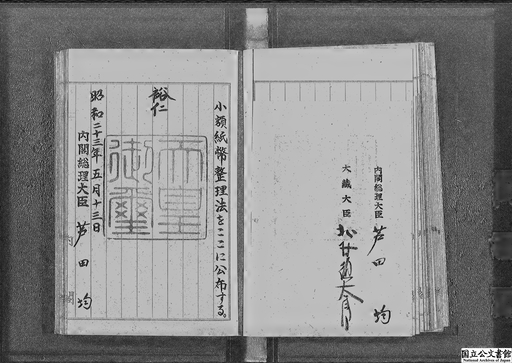 内閣総理大臣 芦田 均
大蔵大臣 北村徳太郎
小額紙幣整理法をここに公布する。
裕仁
天皇
御璽
昭和二十三年五月十三日
内閣総理大臣 芦田 均
国立公文書館
National Archives of Japan